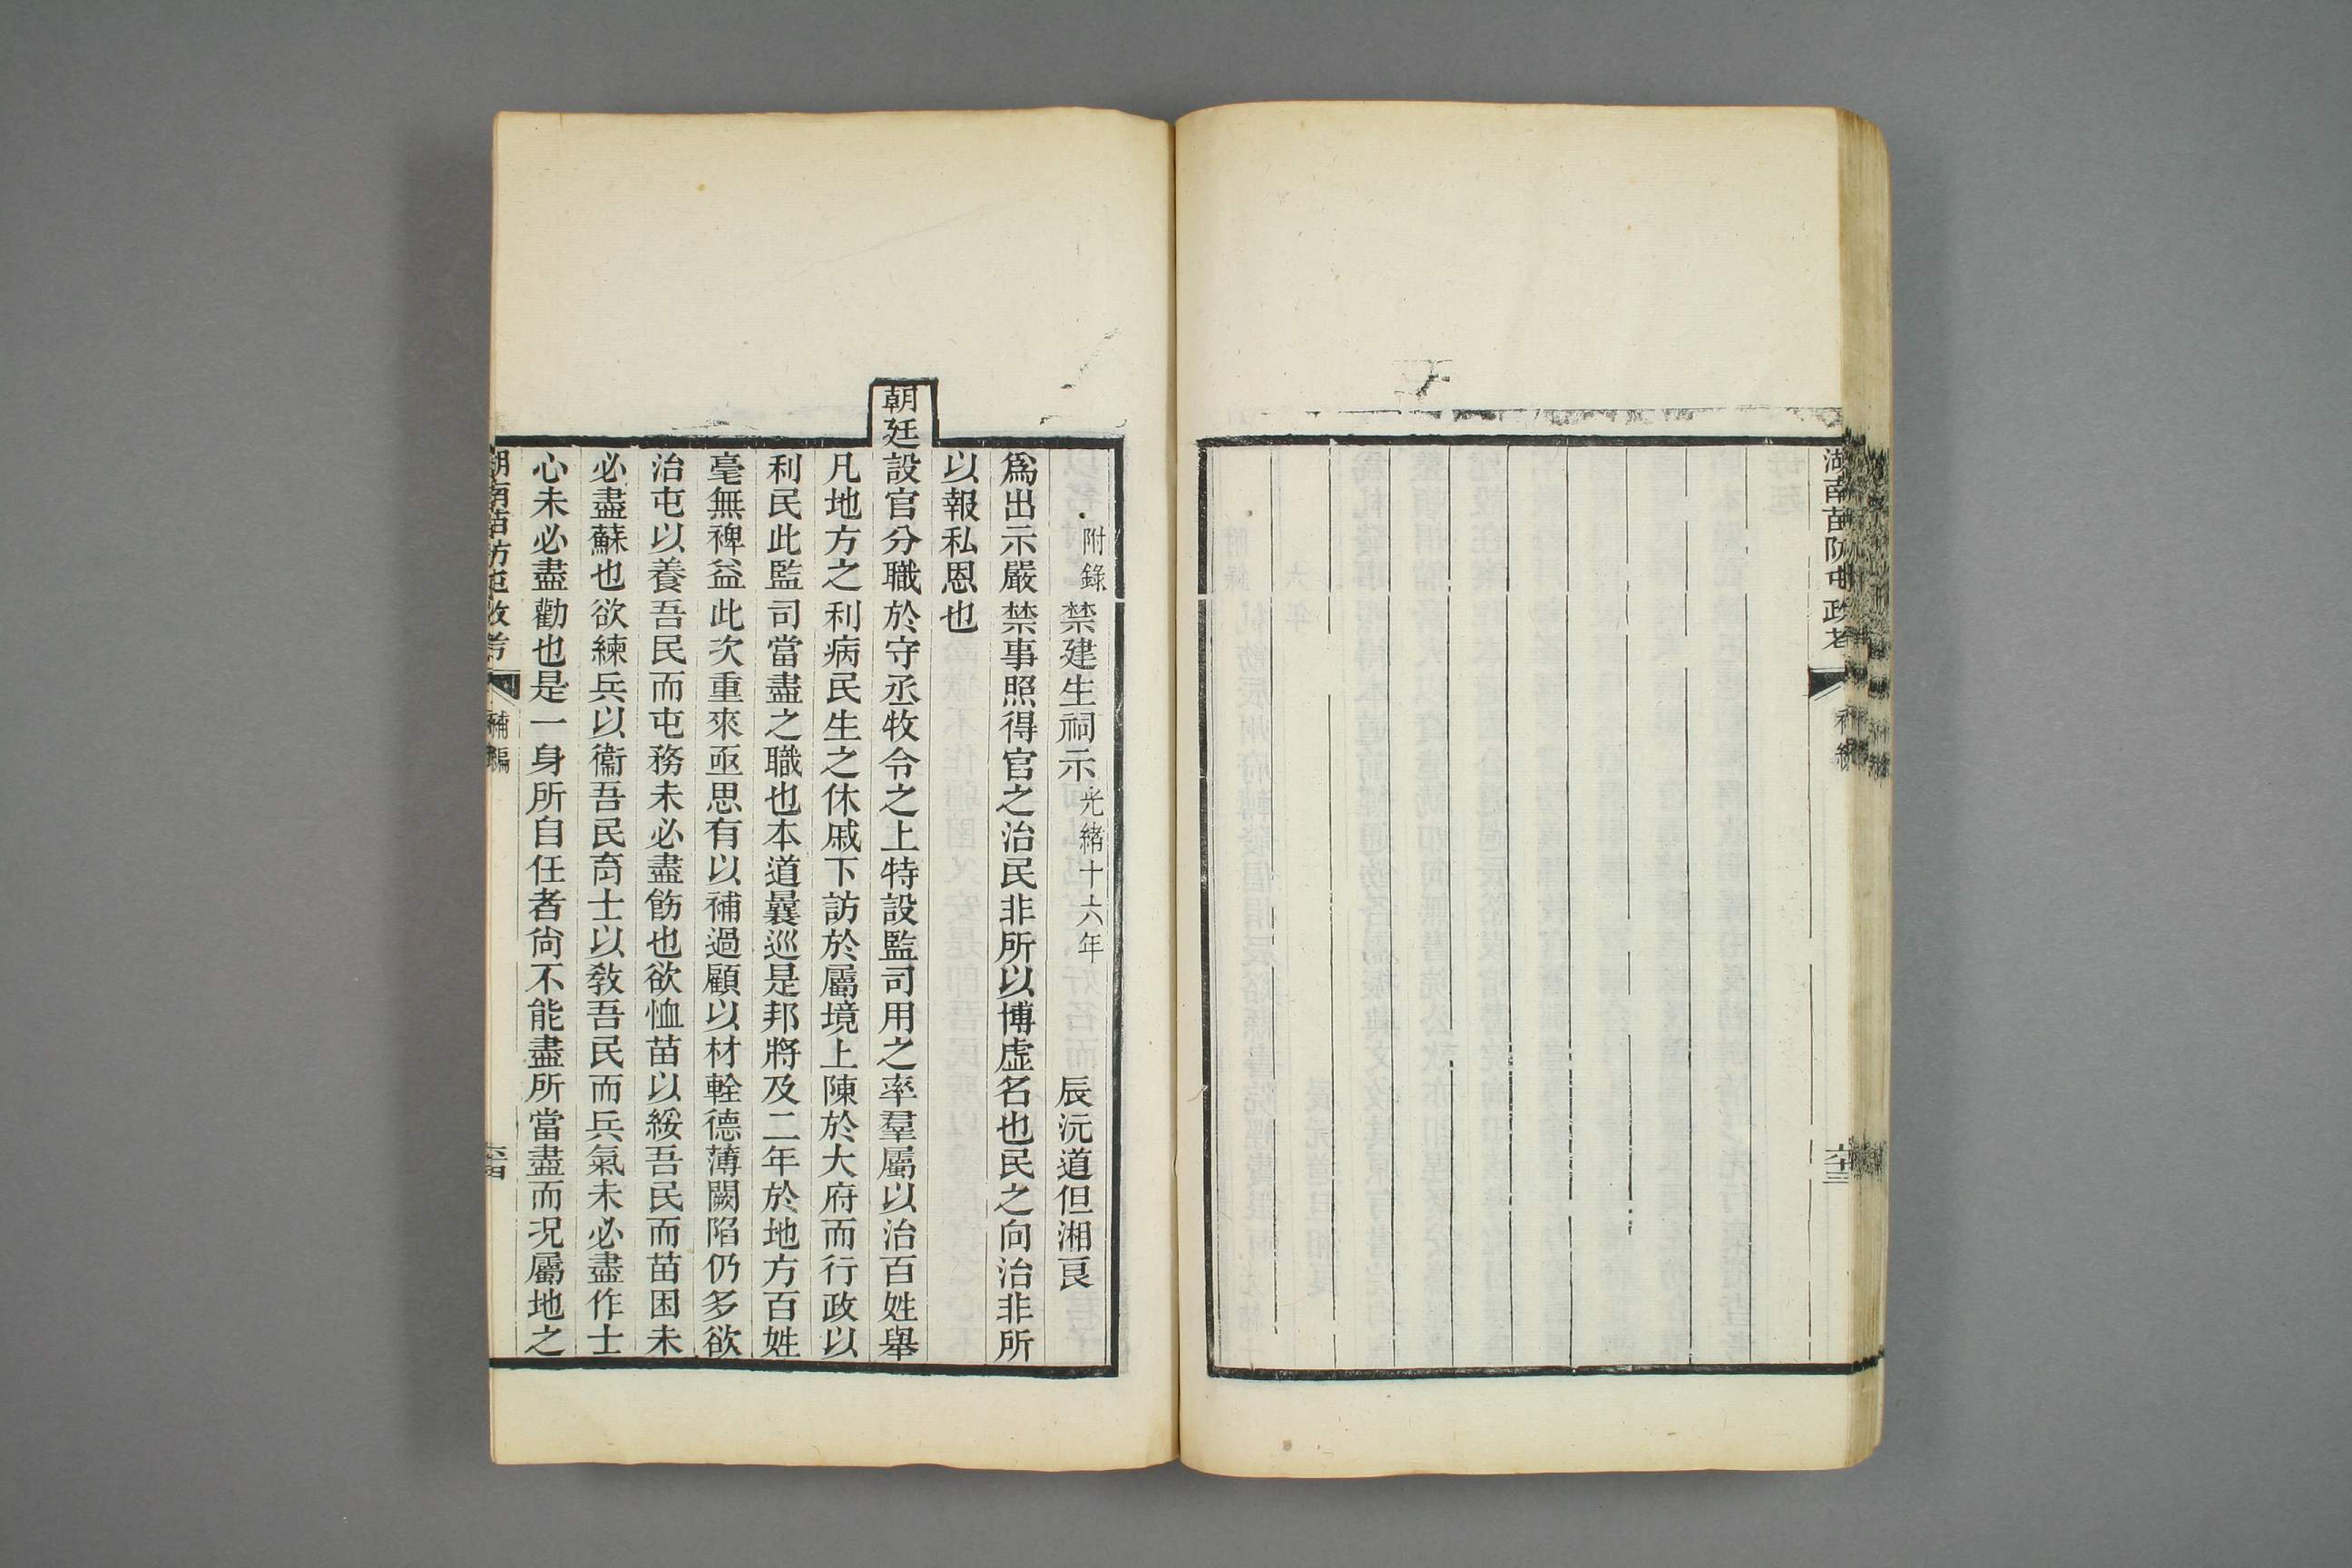 湖南苗防屯政考
補編
六十三
附錄 禁建生祠示 光緒十六年 辰沅道但湘良
爲出示嚴禁事照得官之治民非所以博虛名也民之向治非所
以報私恩也
朝廷設官分職於守丞牧令之上特設監司用之率羣屬以治百姓舉
凡地方之利病民生之休戚下訪於屬境上陳於大府而行政以
利民此監司當盡之職也本道曩巡是邦將及二年於地方百姓
毫無裨益此次重來亟思有以補過顧以材輇德薄闕陷仍多欲
治屯以養吾民而屯務未必盡飭也欲恤苗以綏吾民而苗困未
必盡蘇也欲練兵以衞吾民而兵氣未必盡作士
心未必盡勸也是一身所自任者尙不能盡所當盡而況屬地之
湖南苗防屯政考
補編
六十四